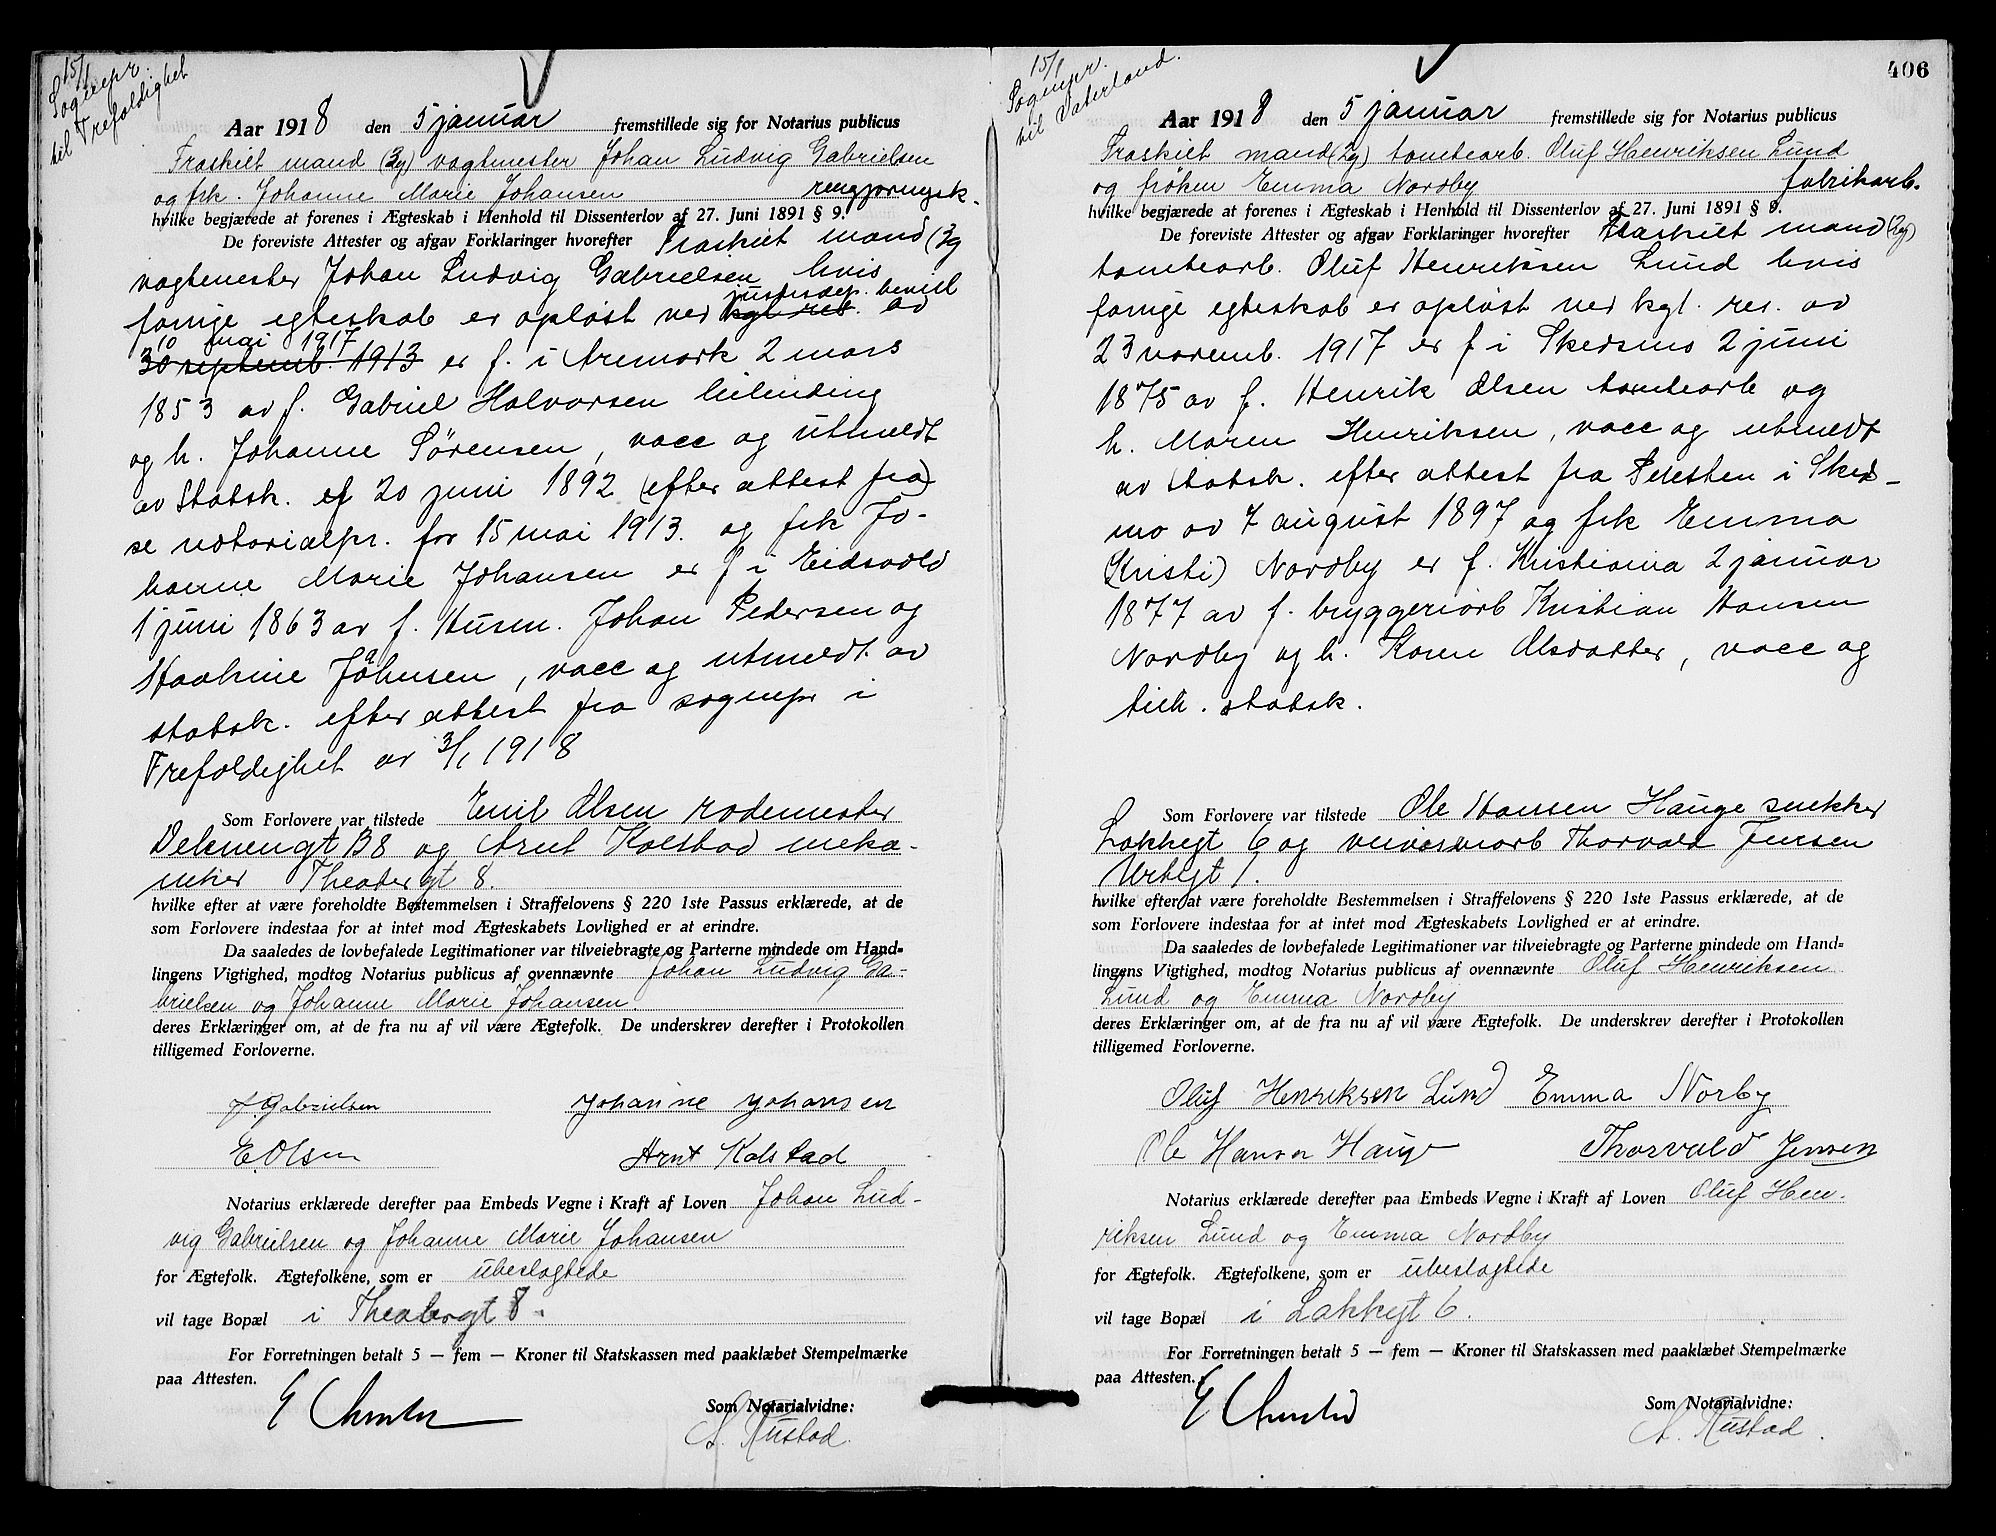 15/1
Sognepr.
til Trefoldighet
Aar 1918 den 5 januar fremstillede sig for Notarius publicus
Fraskilt mand (3g) vagtmester Johan Ludvig Gabrielsen
og frk. Johanne Marie Johansen rengjøringsk.
hvilke begjærede at forenes i Ægteskab i Henhold til Dissenterlov af 27. Juni 1891 § 9.
De foreviste Attester og afgav Forklaringer hvorefter Fraskilt mand (3g
vagtmester Johan Ludvig Gabrielsen hvis
justisdep. bevil
forrige egteskab er opløst ved kgl. res. av
10 mai 1917
30 septemb. 1913 er f. i Aremark 2 mars
1853 av f. Gabriel Halvorsen leilending
og h. Johanne Sørensen, vacc og utmeldt
av Statsk. ef 20 juni 1892 (efter attest fra)
se notorialpr. for 15 mai 1913. og frk Jo-
hanne Marie Johansen er f i Eidsvold
1 juni 1863 av f. Husm. Johan Pedersen og
Johansen, vacc og utmeldt av
statsk. efter attest fra sognepr i
Trefoldighet av 3/1 1918
Som Forlovere var tilstede Emil Olsen rodemester
og Arnt Kolstad meka-
niker Theatergt 8.
hvilke efter at være foreholdte Bestemmelsen i Straffelovens § 220 1ste Passus erklærede, at de
som Forlovere indestaa for at intet mod Ægteskabets Lovlighed er at erindre.
Da saaledes de lovbefalede Legitimationer var tilveiebragte og Parterne mindede om Hand-
lingens Vigtighed, modtog Notarius publicus af ovennævnte Johan Ludvig Ga-
brielsen og Johanne Marie Johansen.
deres Erklæringer om, at de fra nu af vil være Ægtefolk. De underskrev derefter i Protokollen
tilligemed Forloverne.
J. Gabrielsen Johanne Johansen
E. Olsen Arnt Kolstad
Notarius erklærede derefter paa Embeds Vegne i Kraft af Loven Johan Lud-
vig Gabrielsen og Johanne Marie Johansen
for Ægtefolk. Ægtefolkene, som er ubeslagtede
vil tage Bopæl i Theatergt 8.
For Forretningen betalt 5 — fem — Kroner til Statskassen med paaklæbet Stempelmærke
paa Attesten.
Som Notarialvidne:
A. Rustad.
406
15/1
Sognepr.
til Vaterland.
Aar 1918 den 5 januar fremstillede sig for Notarius publicus
Fraskilt mand (2g) tomtearb. Oluf Henriksen Lund
og frøken Emma Nordby fabrikarb.
hvilke begjærede at forenes i Ægteskab i Henhold til Dissenterlov af 27. Juni 1891 § 9.
De foreviste Attester og afgav Forklaringer hvorefter Fraskilt mand (2g)
tomtearb. Oluf Henriksen Lund hvis
forrige egteskab er opløst ved kgl. res. av
23 novemb. 1917 er f i Skedsmo 2 juni
1875 av f. Henrik Olsen tomtearb og
h. Maren Henriksen, vacc og utmeldt
av statsk. efter attest fra Presten i Skeds-
mo av 7 august 1897 og frk Emma
(Kristi) Nordby er f. Kristiania 2 januar
1877 av f. bryggeriarb Kristian Hansen
Nordby og h. Karen Olsdatter, vacc og
tilh. statsk.
Som Forlovere var tilstede Ole Hansen Hauge snekker
Lakkegt 6 og Thorvald Jensen
Urtegt 1.
hvilke efter at være foreholdte Bestemmelsen i Straffelovens § 220 1ste Passus erklærede, at de
som Forlovere indestaa for at intet mod Ægteskabets Lovlighed er at erindre.
Da saaledes de lovbefalede Legitimationer var tilveiebragte og Parterne mindede om Hand-
lingens Vigtighed, modtog Notarius publicus af ovennævnte Oluf Henriksen
Lund og Emma Nordby
deres Erklæringer om, at de fra nu af vil være Ægtefolk. De underskrev derefter i Protokollen
tilligemed Forloverne.
Oluf Henriksen Lund Emma Norby
Ole Hansen Hauge Thorvald Jensen
Notarius erklærede derefter paa Embeds Vegne i Kraft af Loven Oluf Hen-
riksen Lund og Emma Nordby
for Ægtefolk. Ægtefolkene, som er ubeslagtede
vil tage Bopæl i Lakkegt 6.
For Forretningen betalt 5 — fem — Kroner til Statskassen med paaklæbet Stempelmærke
paa Attesten.
Som Notarialvidne:
A. Rustad.